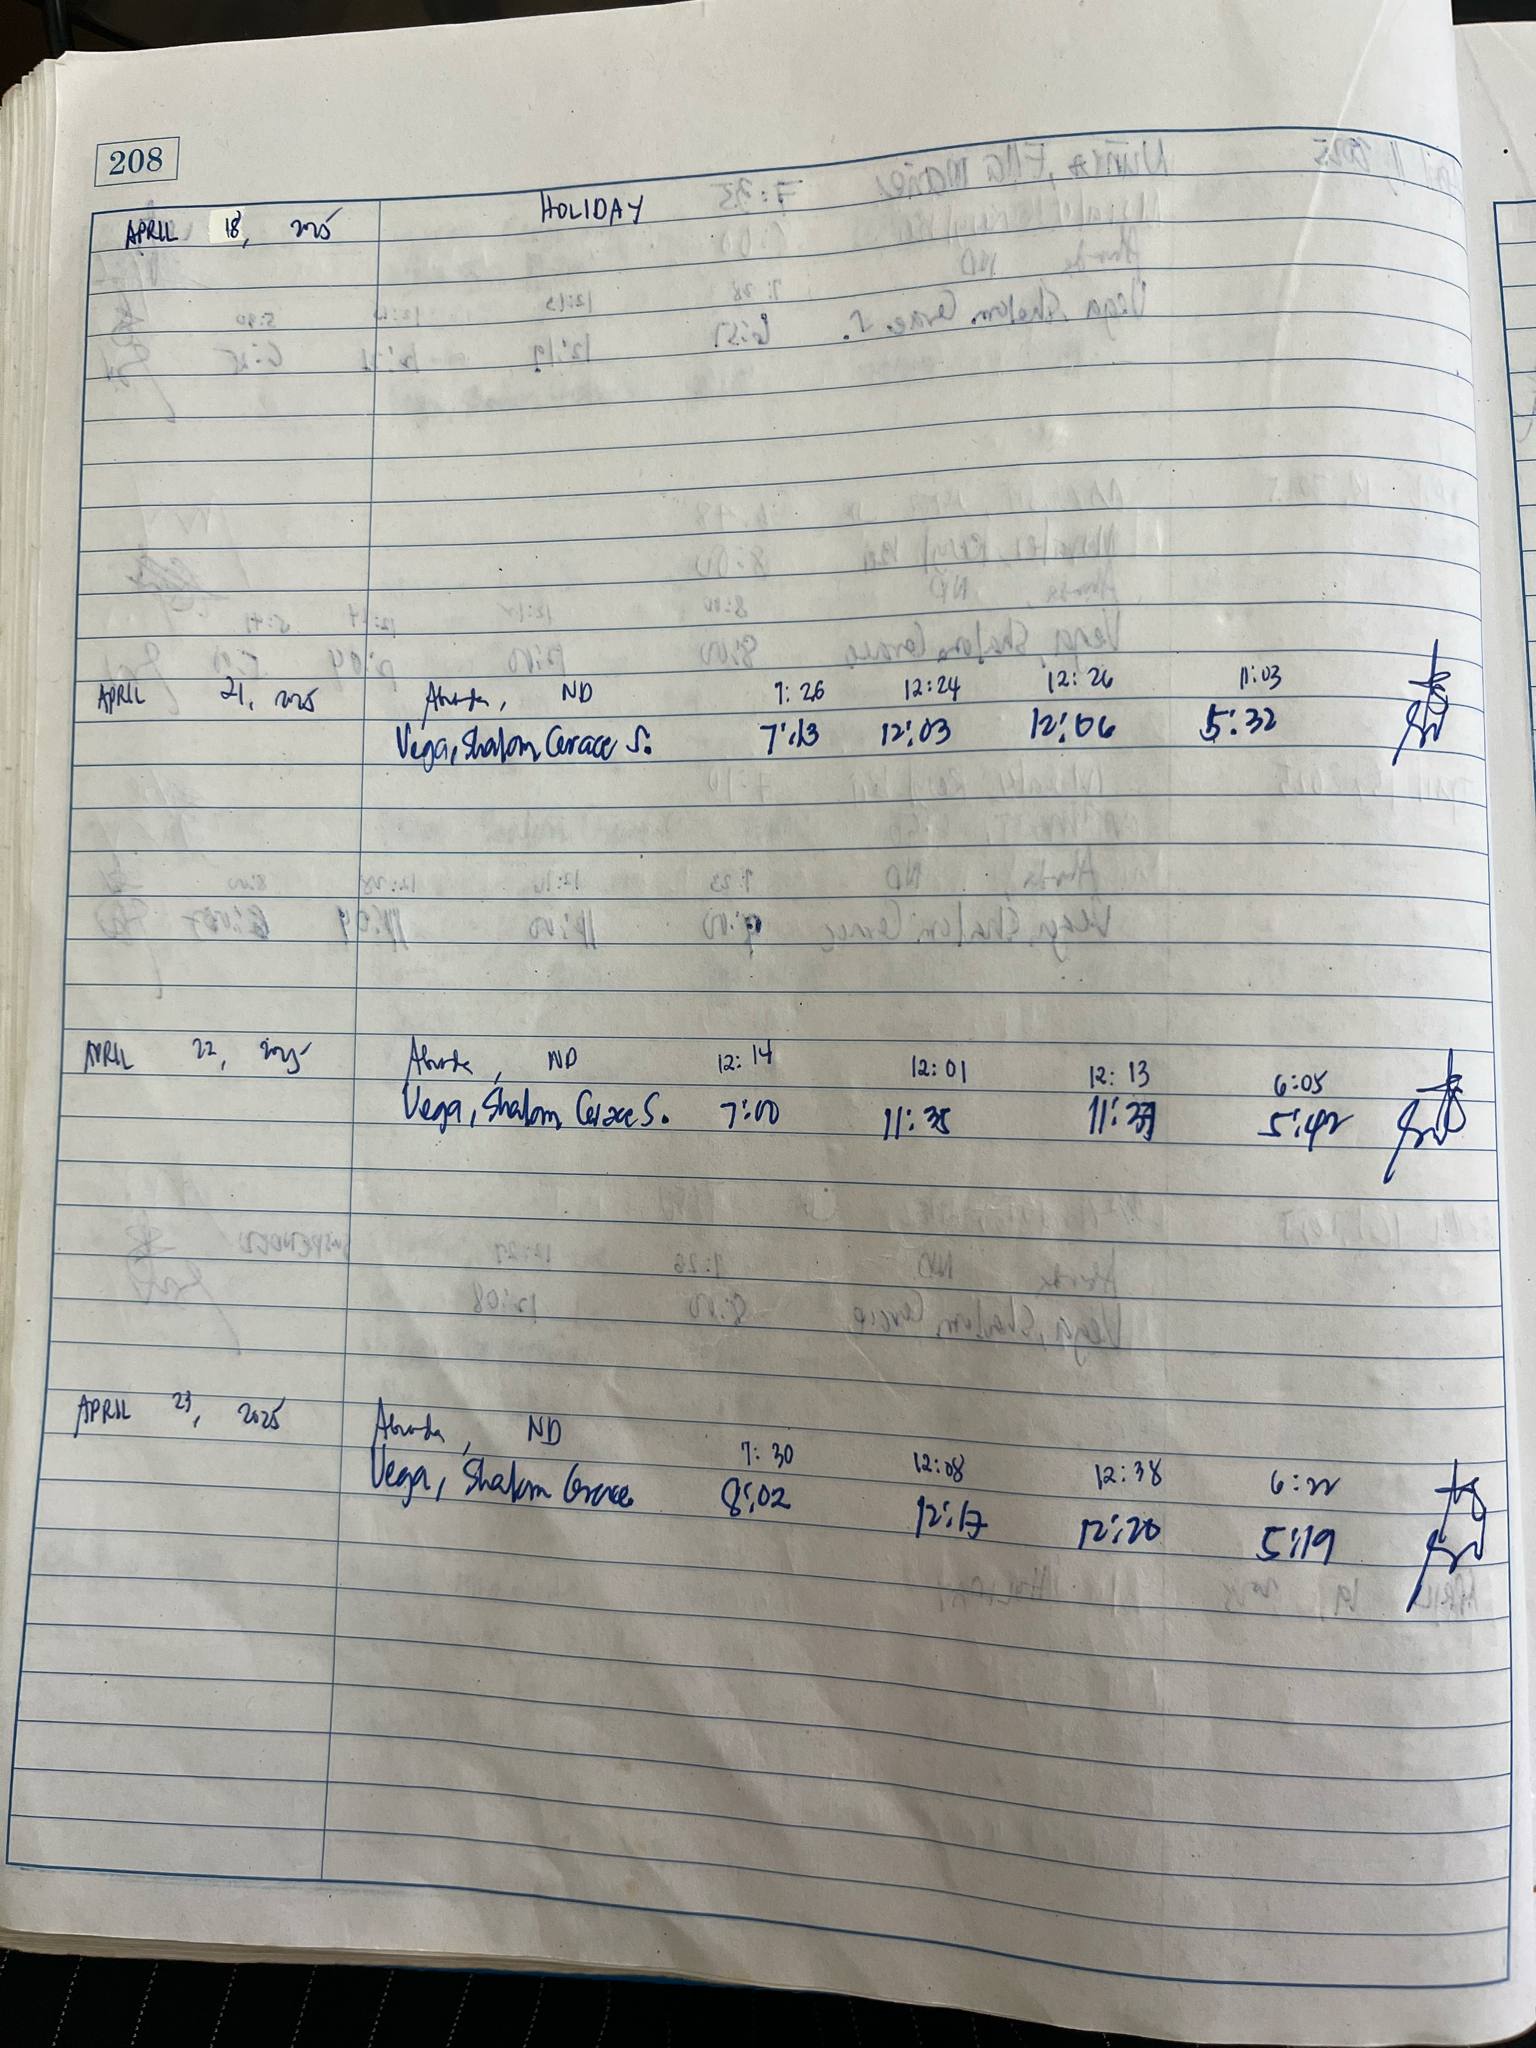 208
APRIL 18, 2025 HOLIDAY
APRIL 21, 2025 Abunda, ND 7:26 12:24 12:26 11:03
Vega, Shalom Cerace S. 7:13 12:03 12:06 5:32
APRIL 22, 2025 Abunda, ND 12:14 12:01 12:13 6:05
Vega, Shalom Cerace S. 7:00 11:35 11:37 5:42
APRIL 23, 2025 Abunda, ND 7:30 12:08 12:38 6:22
Vega, Shalom Cerace 8:02 12:17 12:20 5:19